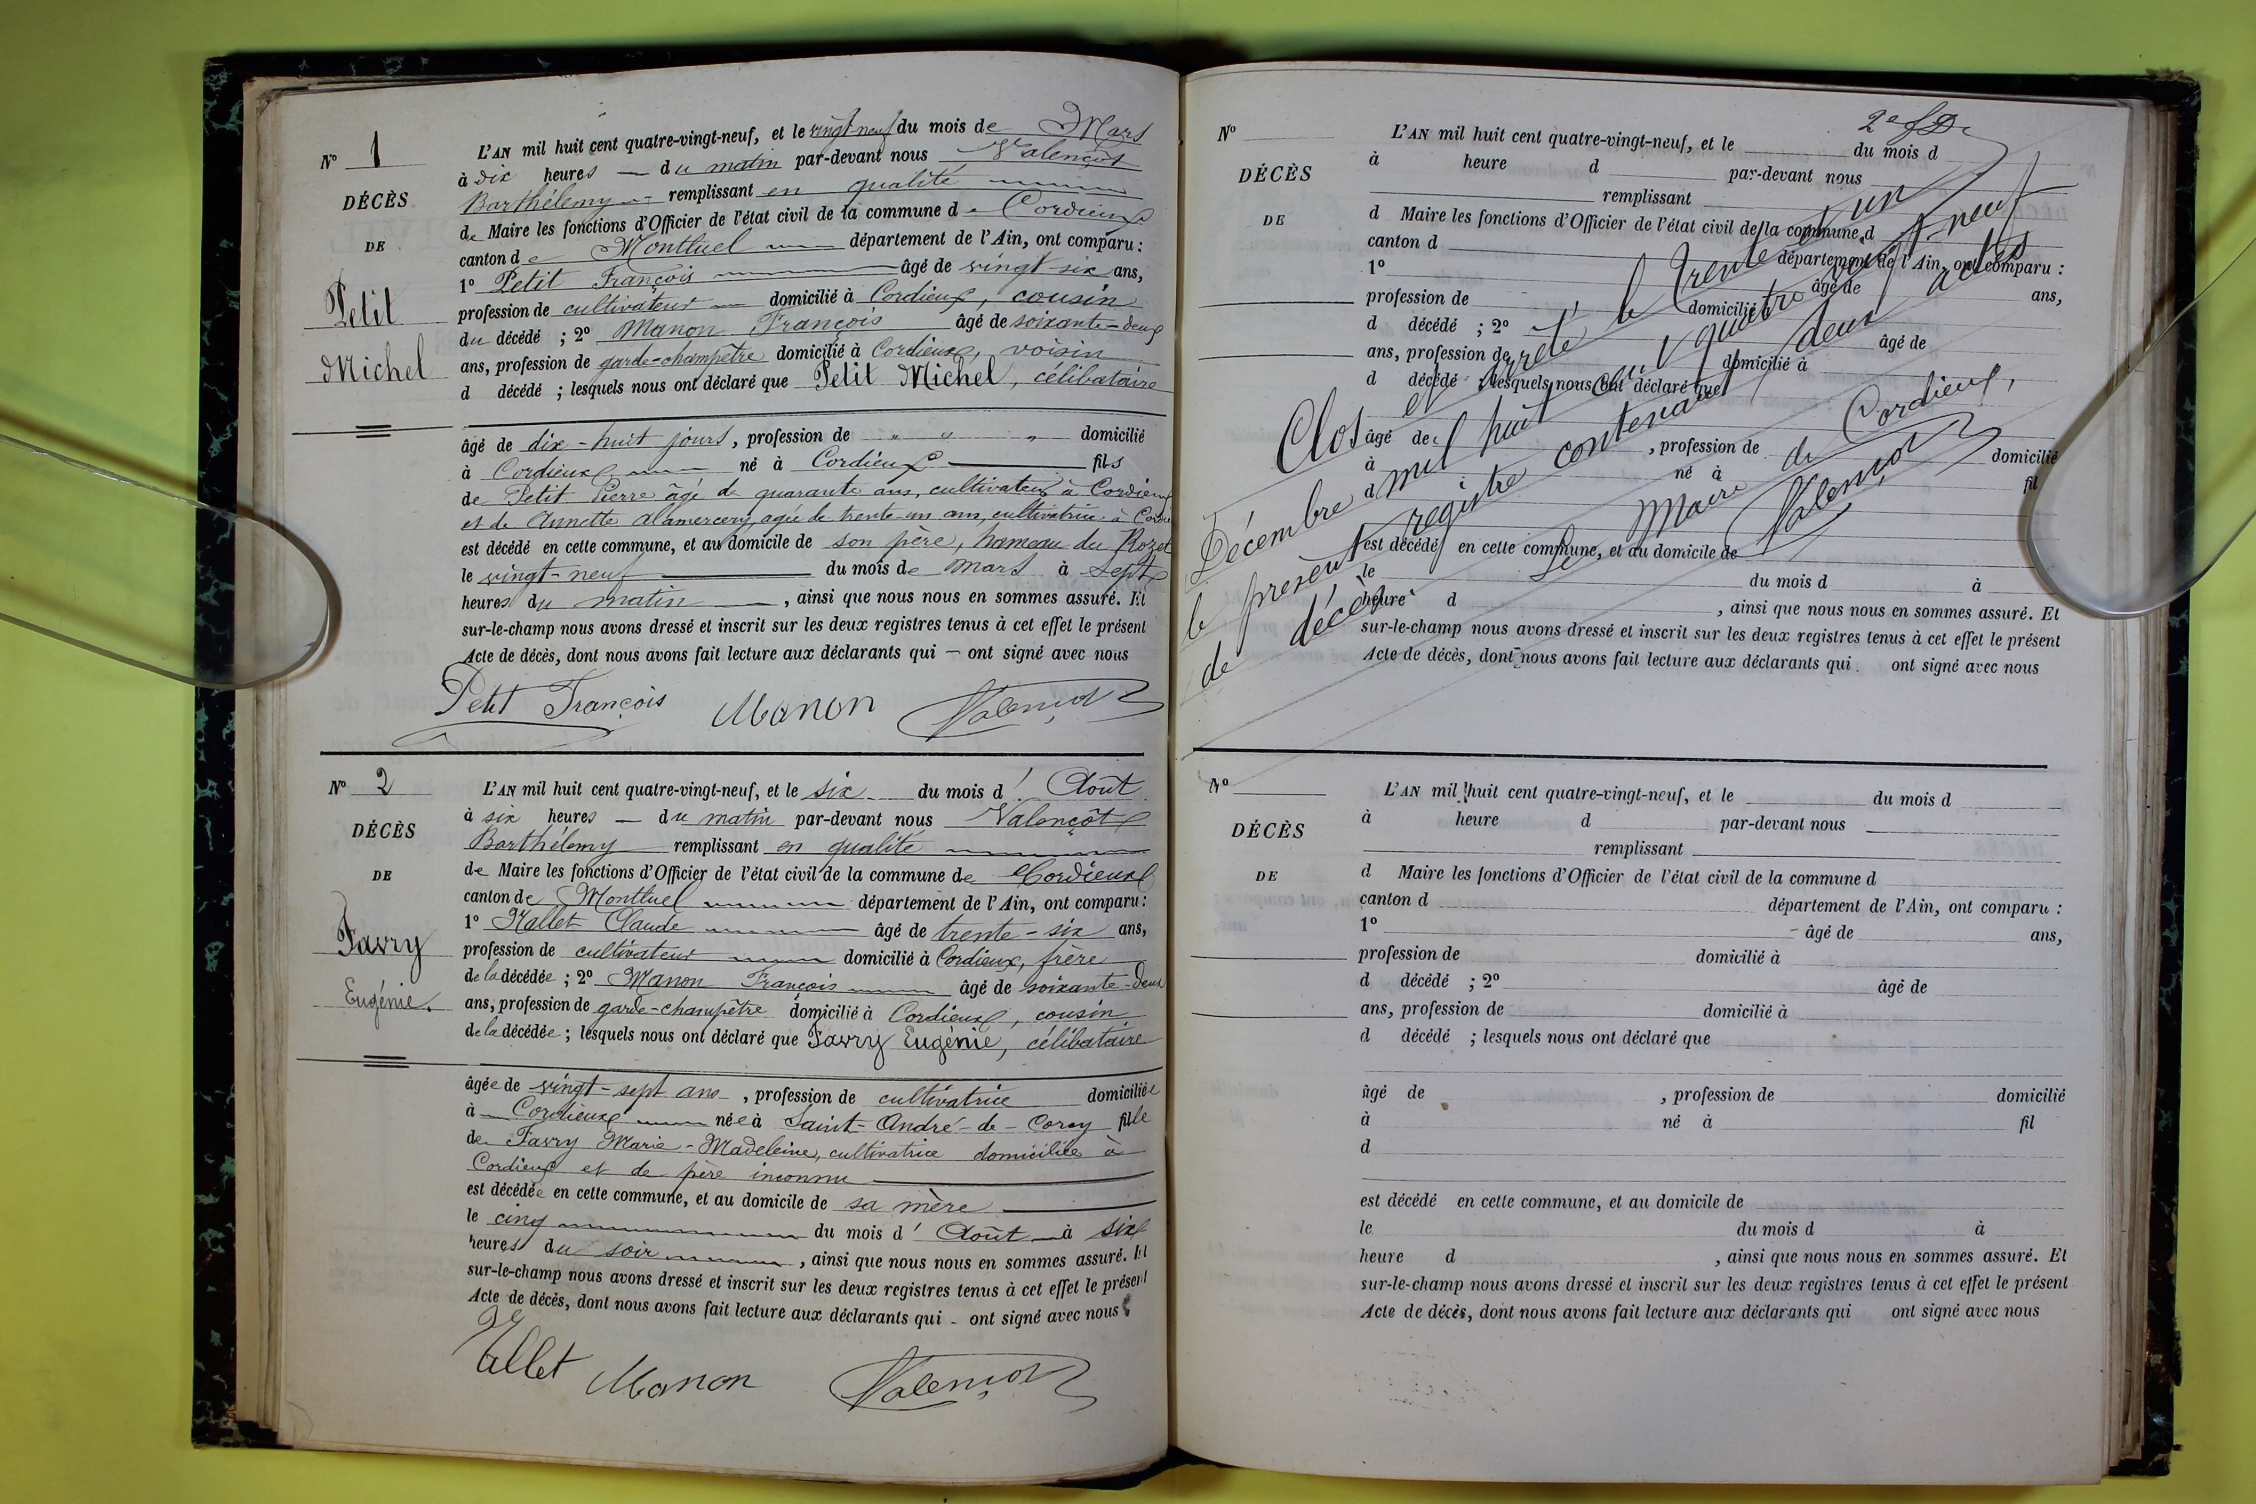 N° 1
DÉCÈS
DE
Petit
Michel
L'AN mil huit cent quatre-vingt-neuf, et le vingt-neuf du mois de Mars
à dix heures — du matin par-devant nous Valençot
Barthélemy remplissant en qualité
de Maire les fonctions d'Officier de l'état civil de la commune de Cordieux
canton de Montluel département de l'Ain, ont comparu :
1° Petit François âgé de vingt-six ans,
profession de cultivateur domicilié à Cordieux, cousin
du décédé ; 2° Manon François âgé de soixante-deux
ans, profession de garde-champêtre domicilié à Cordieux, voisin
d décédé ; lesquels nous ont déclaré que Petit Michel, célibataire
âgé de dix-huit jours, profession de " " " domicilié
à Cordieux né à Cordieux fils
de Petit Pierre âgé de quarante ans, cultivateur à Cordieux
et de Annette agée de trente un ans, cultivatrice à
est décédé en cette commune, et au domicile de son père, hameau du Rozet
le vingt-neuf du mois de Mars à sept
heures du matin, ainsi que nous nous en sommes assuré. Et
sur-le-champ nous avons dressé et inscrit sur les deux registres tenus à cet effet le présent
Acte de décès, dont nous avons fait lecture aux déclarants qui — ont signé avec nous
Petit François Manon Valençot
N° 2
DÉCÈS
DE
Favry
Eugénie.
L'AN mil huit cent quatre-vingt-neuf, et le six du mois d'Août
à six heures — du matin par-devant nous Valençot
Barthélemy remplissant en qualité
de Maire les fonctions d'Officier de l'état civil de la commune de Cordieux
canton de Montluel département de l'Ain, ont comparu :
1° Tallet Claude âgé de trente-six ans,
profession de cultivateur domicilié à Cordieux, frère
de la décédée ; 2° Manon François âgé de soixante-deux
ans, profession de garde-champêtre domicilié à Cordieux, cousin
de la décédée ; lesquels nous ont déclaré que Favry Eugénie, célibataire
âgée de vingt-sept ans, profession de cultivatrice domiciliée
à Cordieux née à Saint-André-de-Corcy fille
de Favry Marie-Madeleine, cultivatrice domiciliée à
Cordieux et de père inconnu
est décédée en cette commune, et au domicile de sa mère
le cinq du mois d'Août à six
heures du soir, ainsi que nous nous en sommes assuré. Et
sur-le-champ nous avons dressé et inscrit sur les deux registres tenus à cet effet le présent
Acte de décès, dont nous avons fait lecture aux déclarants qui - ont signé avec nous
Tallet Manon Valençot
2e
N°
DÉCÈS
DE
L'AN mil huit cent quatre-vingt-neuf, et le du mois d
à heure d par-devant nous
remplissant
d Maire les fonctions d'Officier de l'état civil de la commune d
canton d département de l'Ain, ont comparu :
1° âgé de ans,
profession de domicilié à
d décédé ; 2° âgé de
ans, profession de domicilié à
d décédé ; lesquels nous ont déclaré que
âgé de , profession de domicilié
à né à fil
d
est décédé en cette commune, et au domicile de
le du mois d à
heure d , ainsi que nous nous en sommes assuré. Et
sur-le-champ nous avons dressé et inscrit sur les deux registres tenus à cet effet le présent
Acte de décès, dont nous avons fait lecture aux déclarants qui ont signé avec nous
Clos et arrêté le trente et un
Décembre mil huit cent quatre vingt neuf
le présent registre contenant deux actes
de décès
Le Maire de Cordieux,
Valençot
N°
DÉCÈS
DE
L'AN mil huit cent quatre-vingt-neuf, et le du mois d
à heure d par-devant nous
remplissant
d Maire les fonctions d'Officier de l'état civil de la commune d
canton d département de l'Ain, ont comparu :
1° âgé de ans,
profession de domicilié à
d décédé ; 2° âgé de
ans, profession de domicilié à
d décédé ; lesquels nous ont déclaré que
âgé de , profession de domicilié
à né à fil
d
est décédé en cette commune, et au domicile de
le du mois d à
heure d , ainsi que nous nous en sommes assuré. Et
sur-le-champ nous avons dressé et inscrit sur les deux registres tenus à cet effet le présent
Acte de décès, dont nous avons fait lecture aux déclarants qui ont signé avec nous